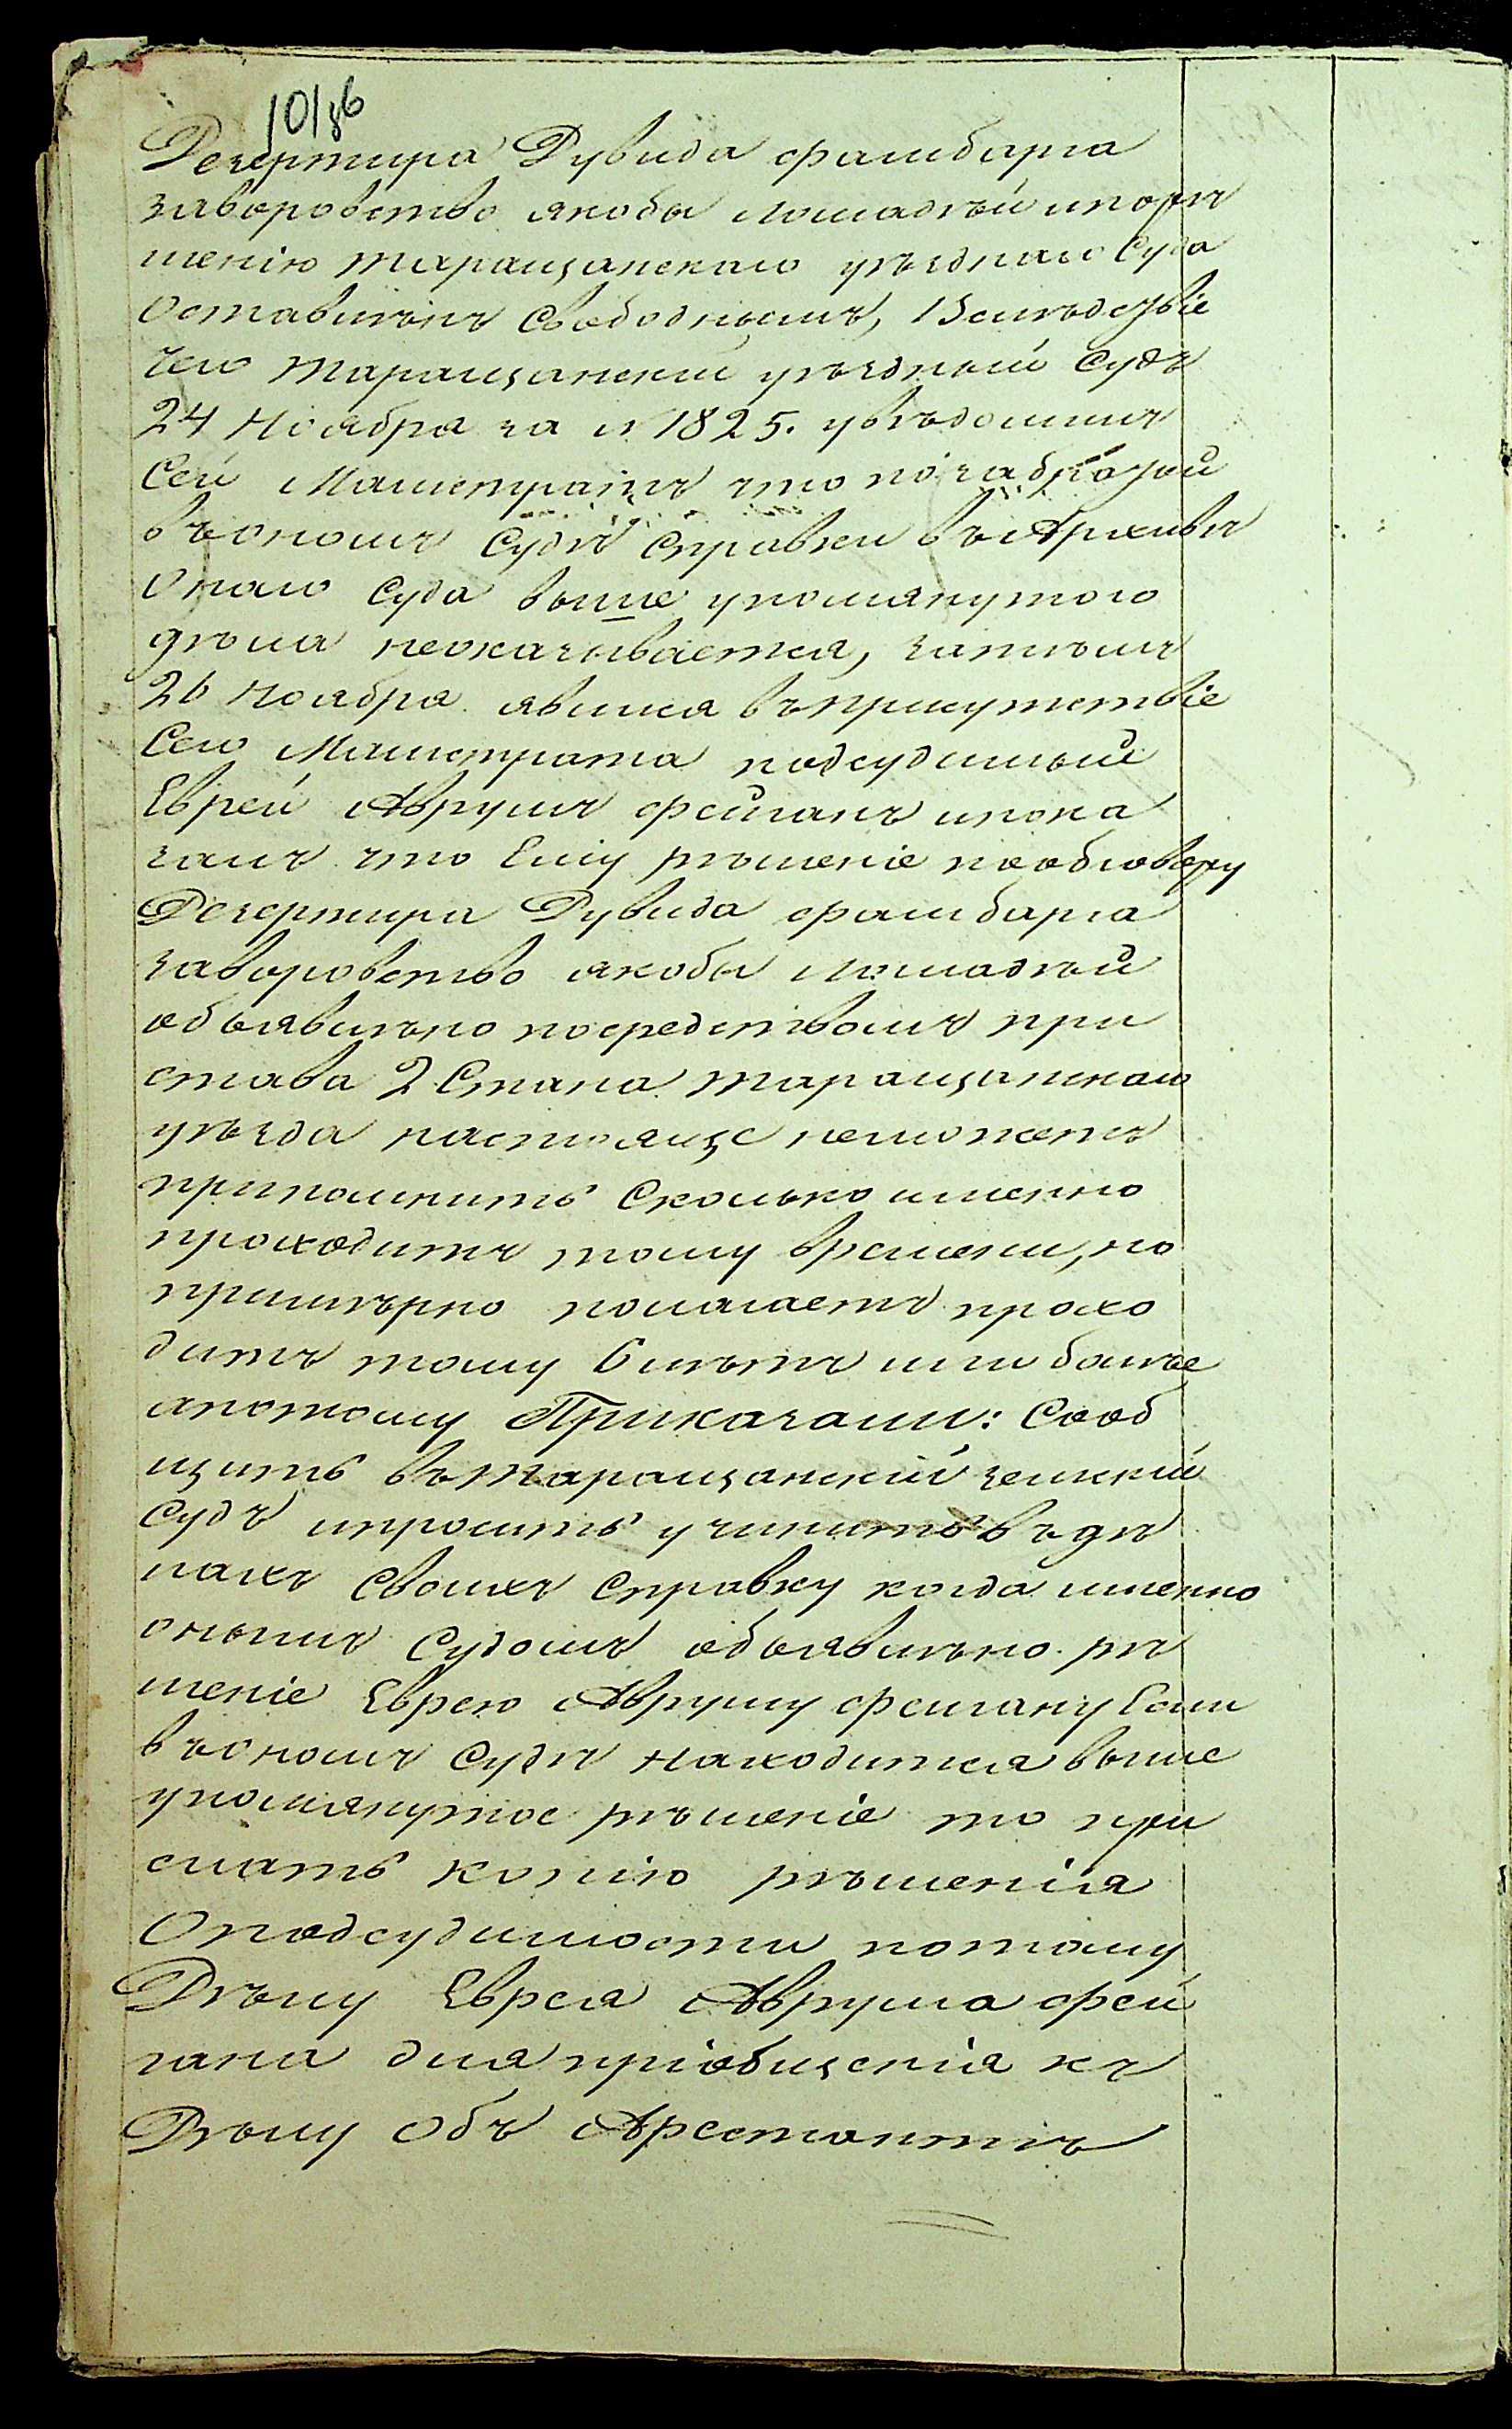 10/86
Дезертира Дувида Файнбарга
заворовство якобы лошадѣй ипорѣ
шенію таращанскаго уѣзднаго Суда
Оставилѣнъ Свободнымъ, Вслѣдствіе
чего таращанский уѣздный Судъ
24 Ноября за № 1825. увѣдомилъ
Сей Магистратъ что по
въономъ Судѣ Справки въАрхивѣ
Онаго Суда выше упомянутого
дѣла неоказывается, затѣмъ
26 Ноября явился въприсутствіе
Сего Магистрата подсудимый
Еврей Аврумъ Фейганъ ипока
залъ что Ему рѣшеніе пообговору
Дезертира Дувида Файнбарга
заворовство якобы лошадѣй
объявилѣно посредствомъ при
става 2 Стана таращанскаго
уѣзда настояще неможетъ
припомнить Сколько именно
проходитъ тому времени, но
примѣрно полагаетъ прохо
дитъ тому 6 лѣтъ или болѣе
апотому Приказали: Сооб
щить въТаращанский земский
Судъ ипросить учинить въдѣ
лахъ Своихъ Справку когда именно
онымъ Судомъ объявилѣно рѣ
шеніе Еврею Авруму Фейгану Если
въономъ Судѣ Находится выше
упомянутое рѣшеніе то при
слать копію рѣшенія
Оподсудимости потому
Дѣлу Еврея Аврума Фей
гана для пріобщенія къ
Дѣлу Объ Арестантѣ